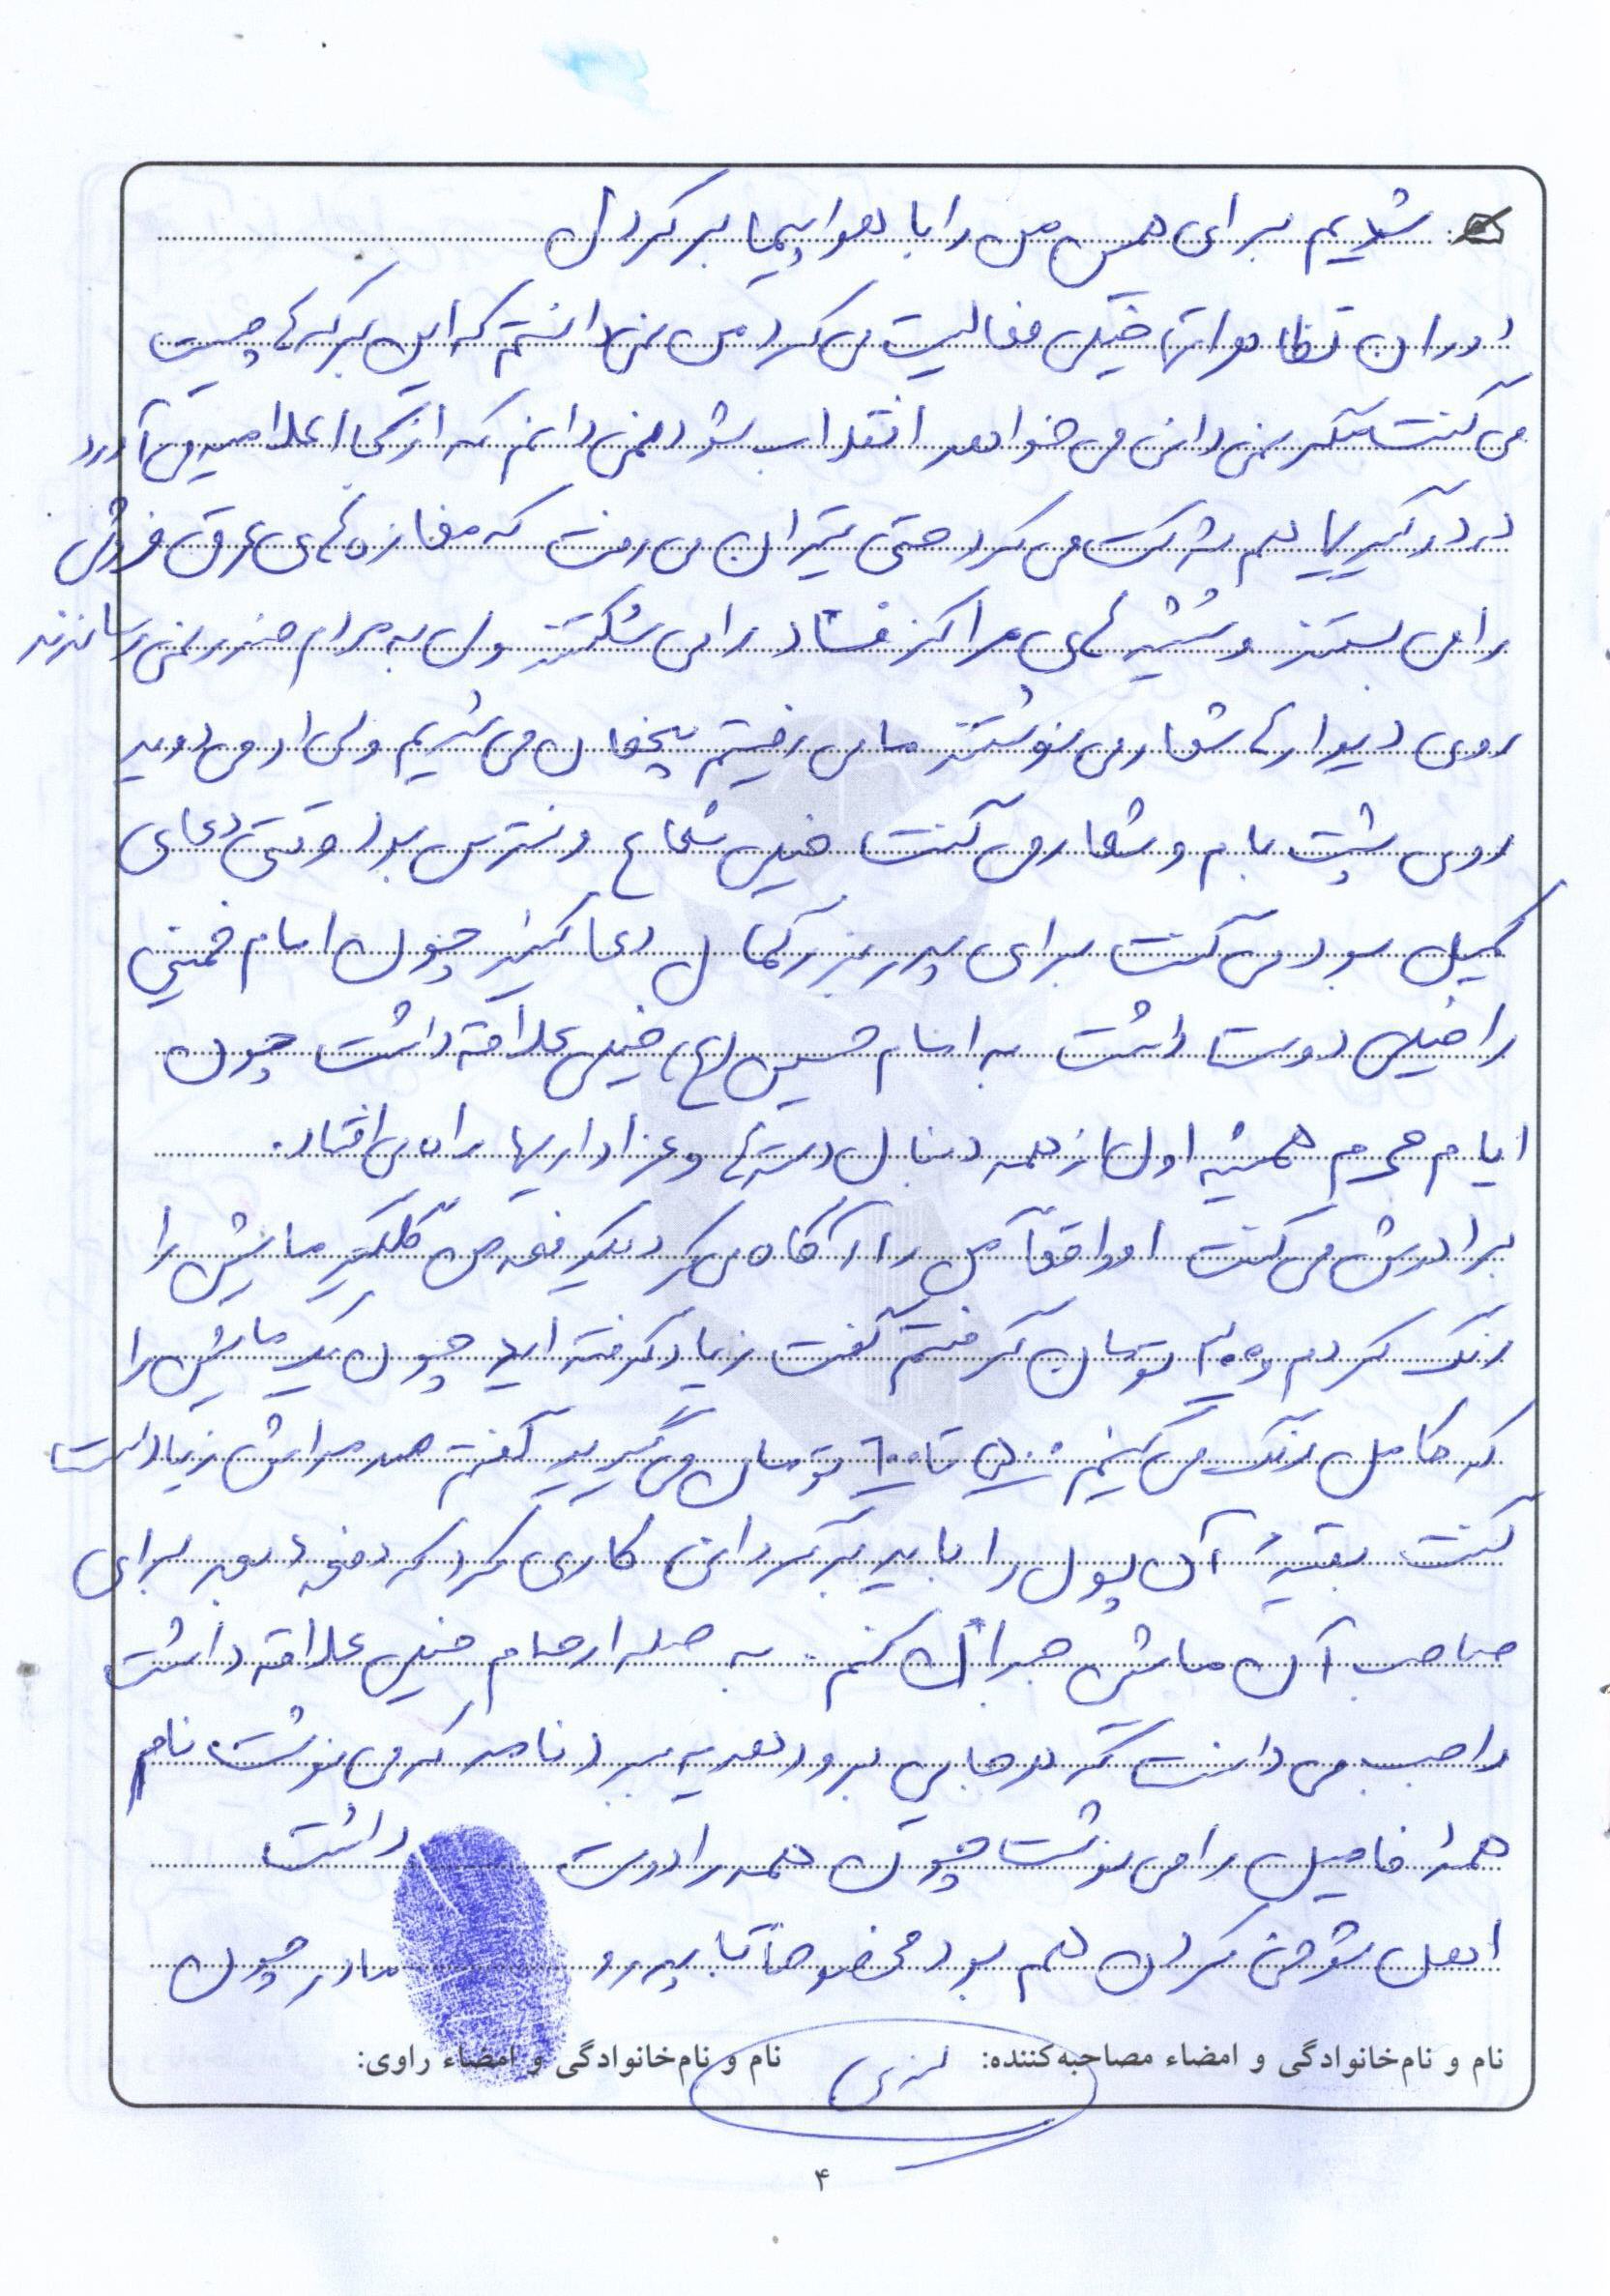 شدیم برای همین من را با هواپیما برگرداند
دوران تظاهراتها خیلی فعالیت می کرد من نمی دانستم که این برگه ها چیست
می گفت مگر نمی دانی می خواهد انقلاب بشود نمی دانم که از کجا اعلامیه می آورد
در درگیریها هم شرکت می کرد حتی تهران می رفت که مغازه های عرق فروشی
را می بستند و شیشه های مراکز فساد را می شکستند ولی به مردم ضرر نمی رساندند
روی دیوارها شعار می نوشتند ما می رفتیم پنهان می شدیم ولی او می دوید
روی پشت بام و شعار می گفت خیلی شجاع و نترس بود وقتی دعای
کمیل بود می گفت برای پدر بزرگمان دعا کنید چون امام خمینی
را خیلی دوست داشت به امام حسین (ع) خیلی علاقه داشت چون
ایام محرم همیشه اول از همه دنبال دسته ها و عزاداریها راه می افتاد.
برادرش می گفت او واقعاً من را آگاه می کرد یکدفعه من گلگیر ماشین را
رنگ کردم و ۳۰۰ تومان گرفتم گفت زیاد گرفته اید چون یک ماشین را
که کامل رنگ می کنیم ۵۰۰ تا ۶۰۰ تومان می گیرید گفتم صد تومانش زیاد است
گفت بقیه آن پول را باید برگردانی کاری کرد که دفعه بعد برای
صاحب آن ماشین جبران کنم. به صله ارحام خیلی علاقه داشت
واجب می دانست که هر جایی برود هدیه ببرد نامه که می نوشت نام
همۀ فامیل را می نوشت چون همه را دوست داشت
اهل شوخی کردن هم بود مخصوصاً با پدر و مادر چون
نام و نام‌خانوادگی و امضاء مصاحبه‌کننده: نام و نام‌خانوادگی و امضاء راوی:
۴